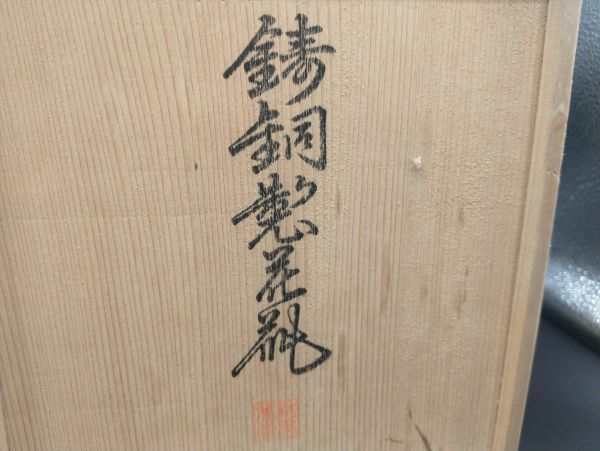 鋳銅製花瓶